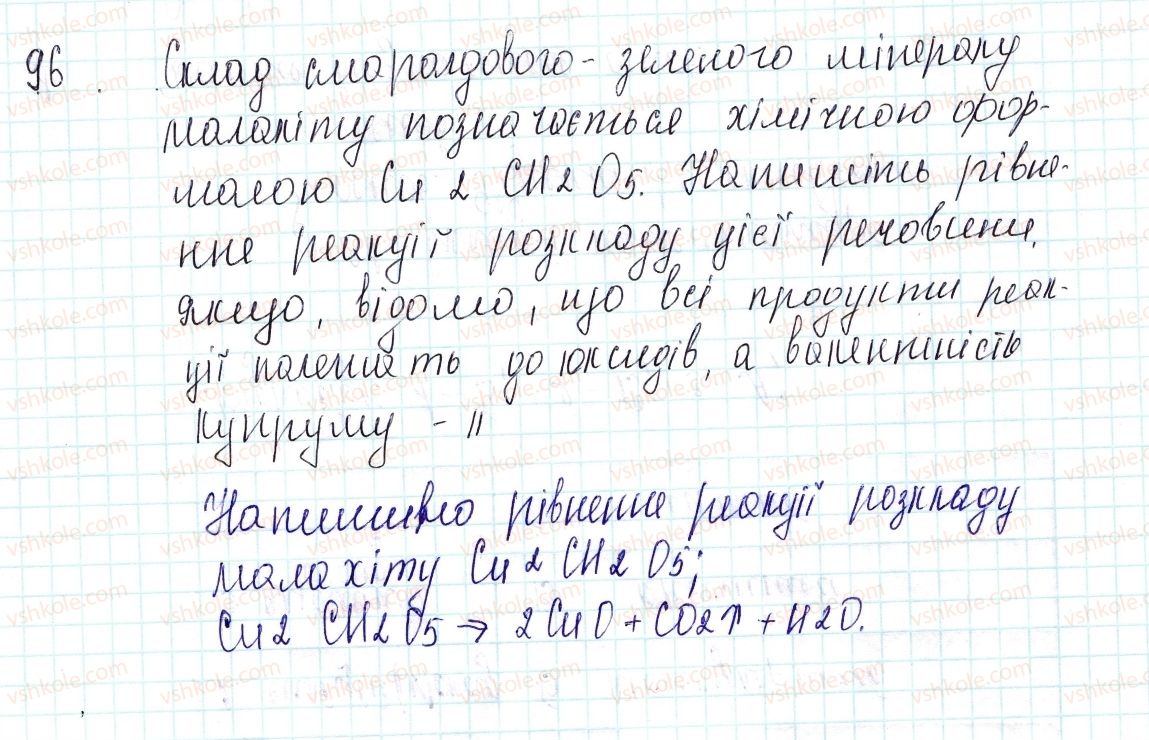 96. Склад смарагдового-зеленого мінералу
малахіту позначається хімічною фор-
мулою Cu2CH2O5. Напишіть рівня-
ння реакції розкладу цієї речовини,
якщо, відомо, що всі продукти реак-
ції належать до юксидів, а валентність
Купруму - II
Напишимо рівняння реакції розкладу
малахіту Cu2CH2O5;
Cu2CH2O5 → 2CuO + CO2↑ + H2O.